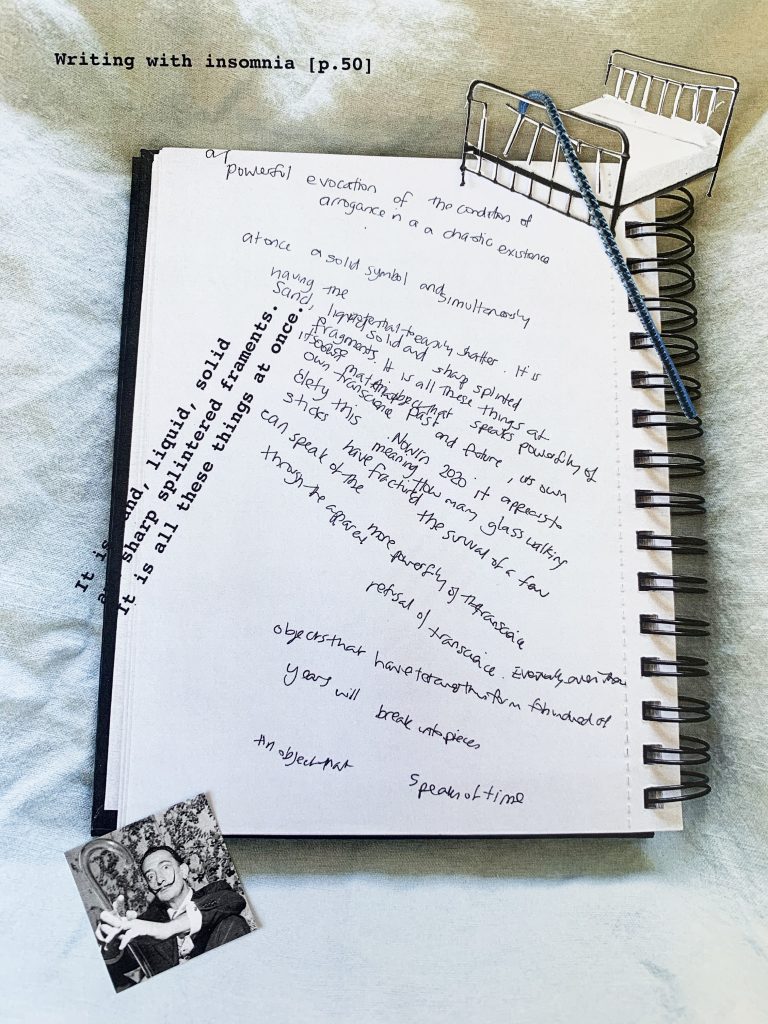 Writing with insomnia [p.50]
powerful evocation of the condition of
arrogance in a a chaotic existence
at once a solid symbol and simultaneously
having the potential to easily shatter. It is
Sand, liquid, solid and sharp splinted
fragments. It is all these things at
once object that speaks powerfully of
own transcience past and future, its own
. Now in 2020 it appears to
defy this meaning. How many glass walking
sticks have fractured the survival of a few
can speak of the more powerfully of transcience
through the apparent
refusal of transcience. Eventually, even those
objects that have form for hundred of
years will break into pieces
An object that speaks of time
It is sand, liquid, solid
sharp splintered framents.
It is all these things at once.